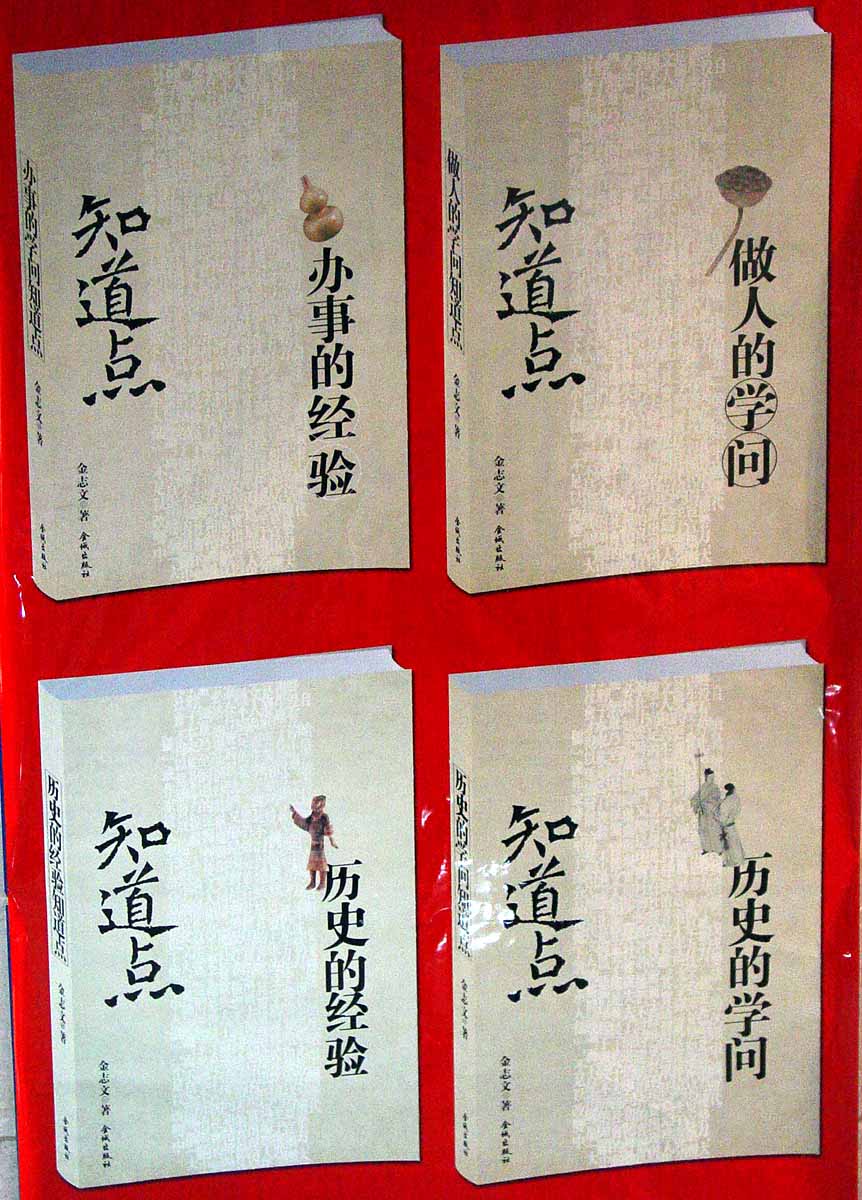 办事的学问知道点
金志文 著
金城出版社
知道点
办事的经验
金志文 著
金城出版社
做人的学问知道点
金志文 著
金城出版社
知道点
做人的学问
金志文 著
金城出版社
历史的经验知道点
金志文 著
金城出版社
知道点
历史的经验
金志文 著
金城出版社
历史的学问知道点
金志文 著
金城出版社
知道点
历史的学问
金志文 著
金城出版社